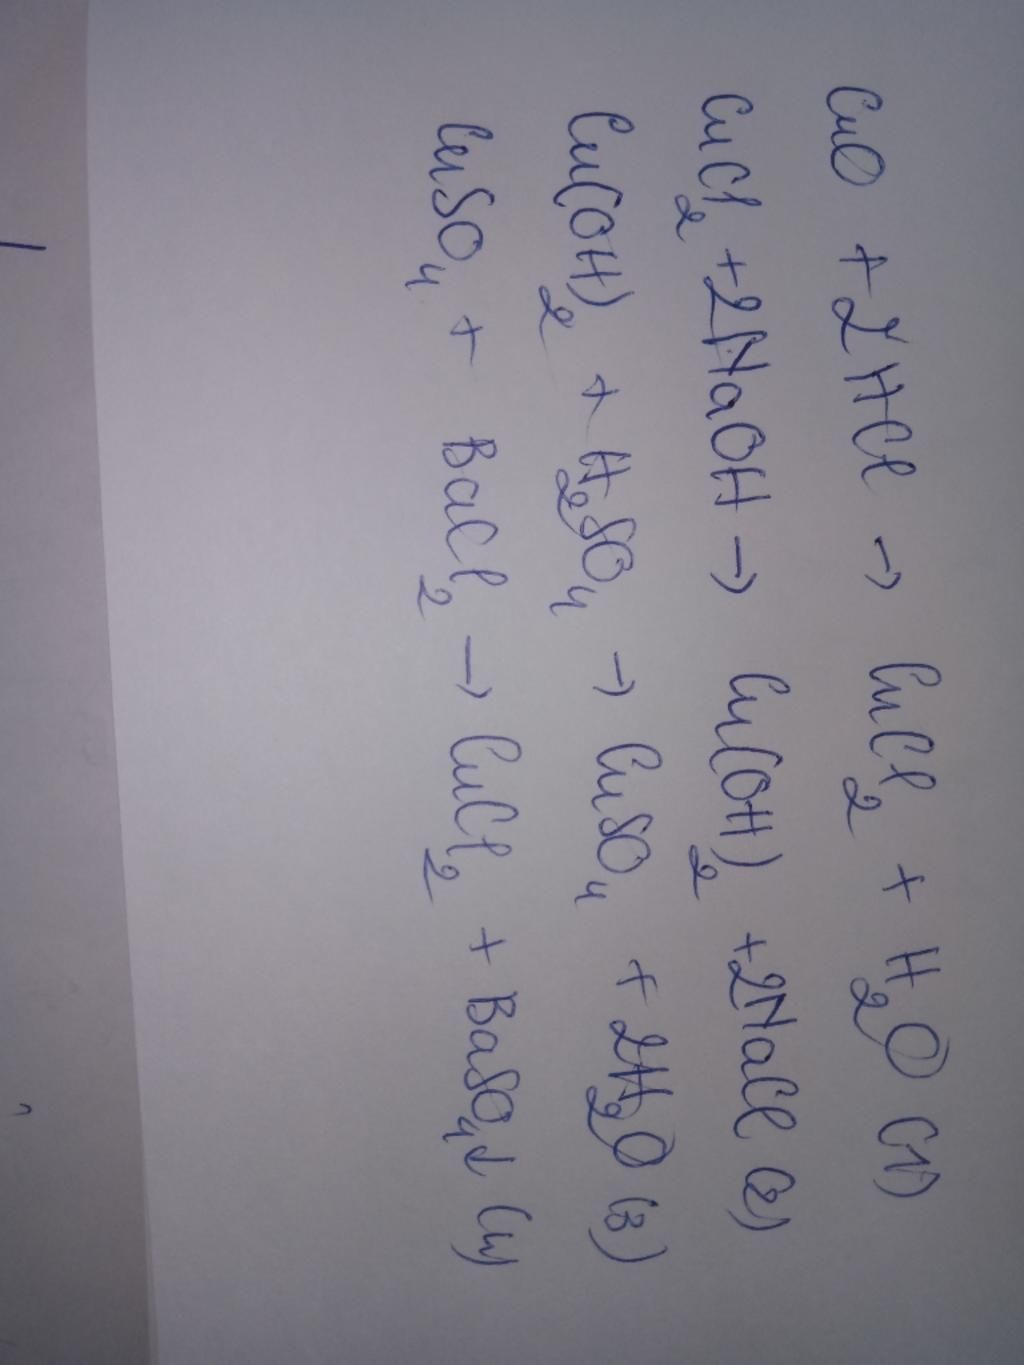 CuO + 2HCl → CuCl₂ + H₂O (1)
CuCl₂ + 2NaOH → Cu(OH)₂ + 2NaCl (2)
Cu(OH)₂ + H₂SO₄ → CuSO₄ + 2H₂O (3)
CuSO₄ + BaCl₂ → CuCl₂ + BaSO₄↓ (4)